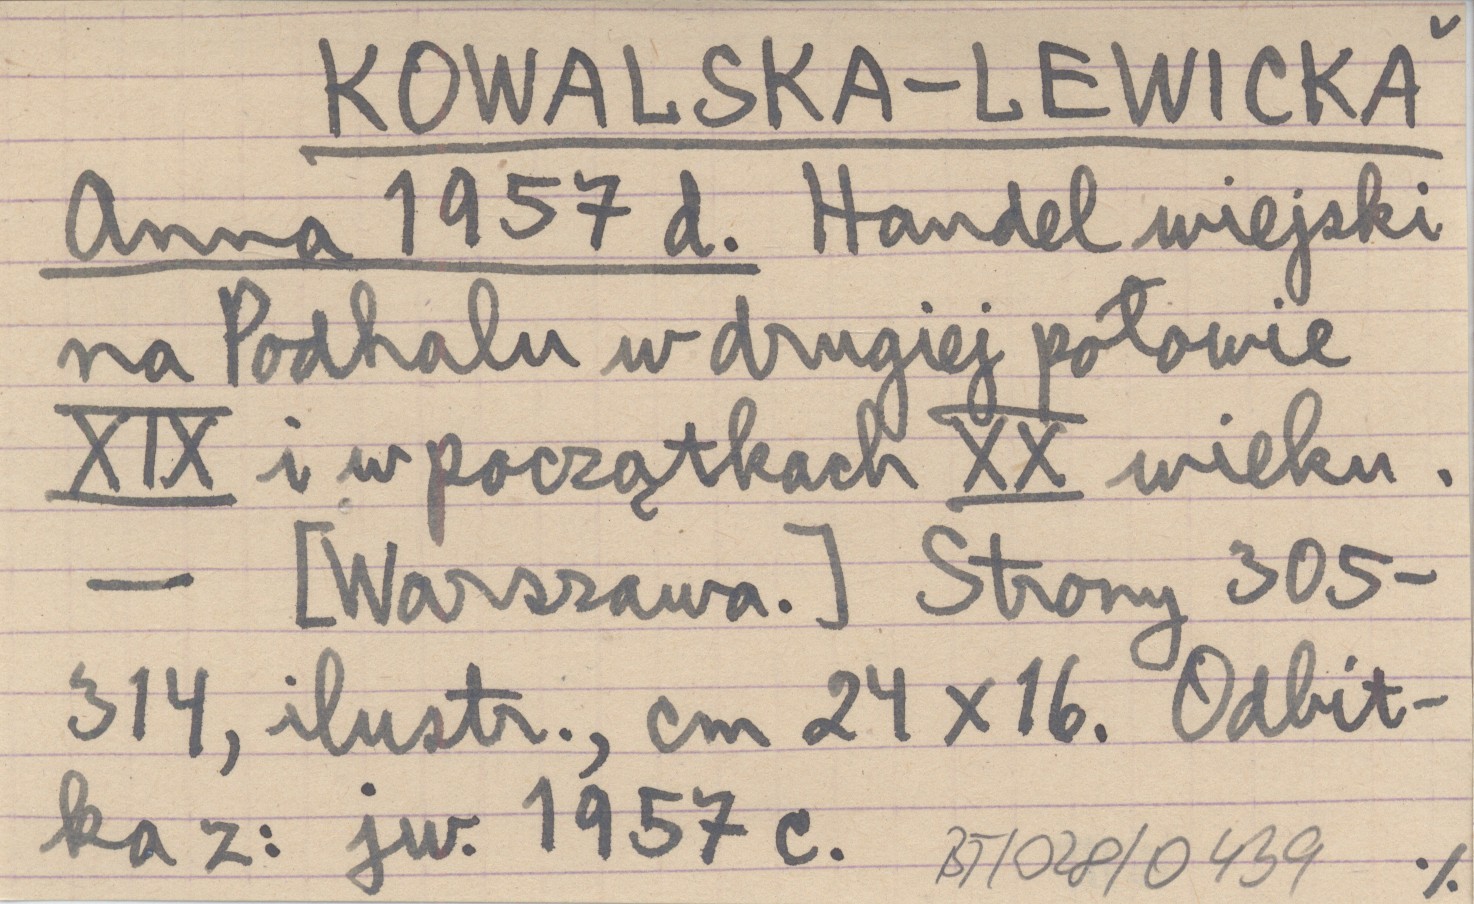 KOWALSKA-LEWICKA ˇ
Anna 1957 d. Handel wiejski
na Podhalu w drugiej połowie
XIX i w początkach XX wieku.
— [Warszawa.] Strony 305-
314, ilustr., cm 24 x 16. Odbit-
ka z: jw. 1957 c.
BT/028/0439 ./.